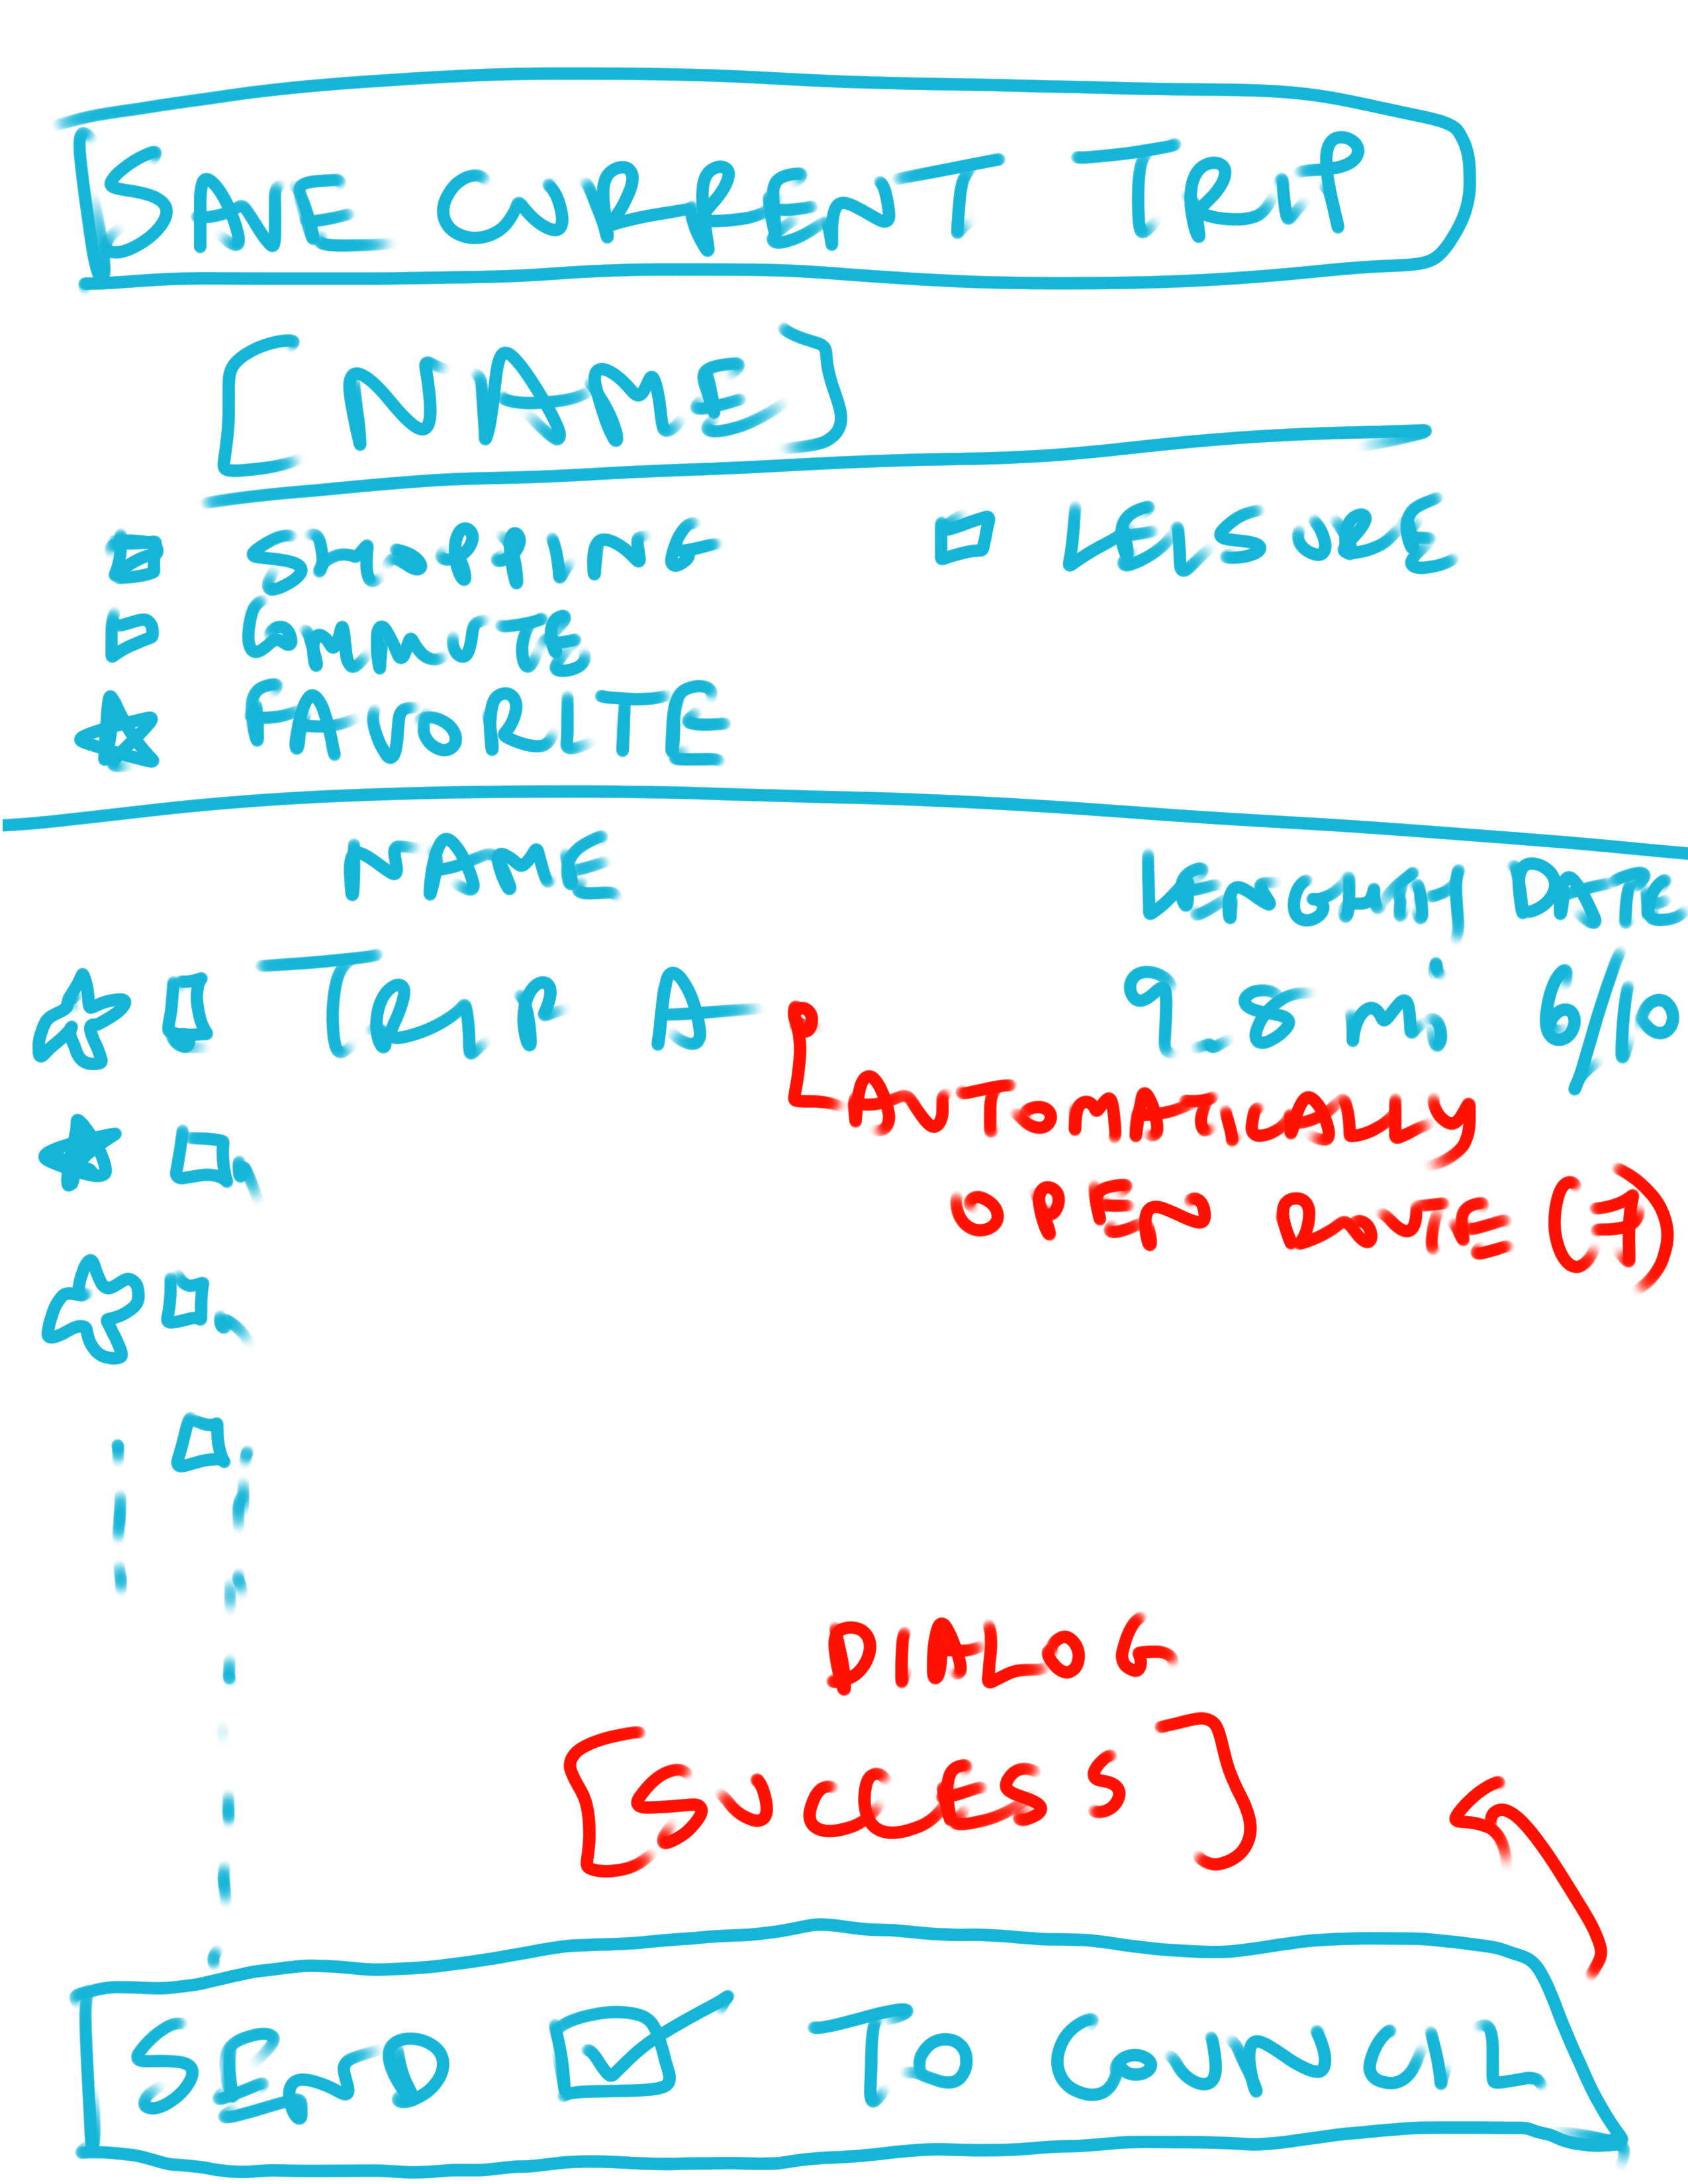 SAVE CURRENT TRIP
[NAME]
SHOPPING LEISURE
COMMUTE
FAVORITE
NAME LENGHTH DATE
TOUR A 9.8 mi 6/10
AUTOMATICALLY
OPEN ROUTE (7)
DIALOG
[SUCCESS]
SEND ☑ TO COUNCIL